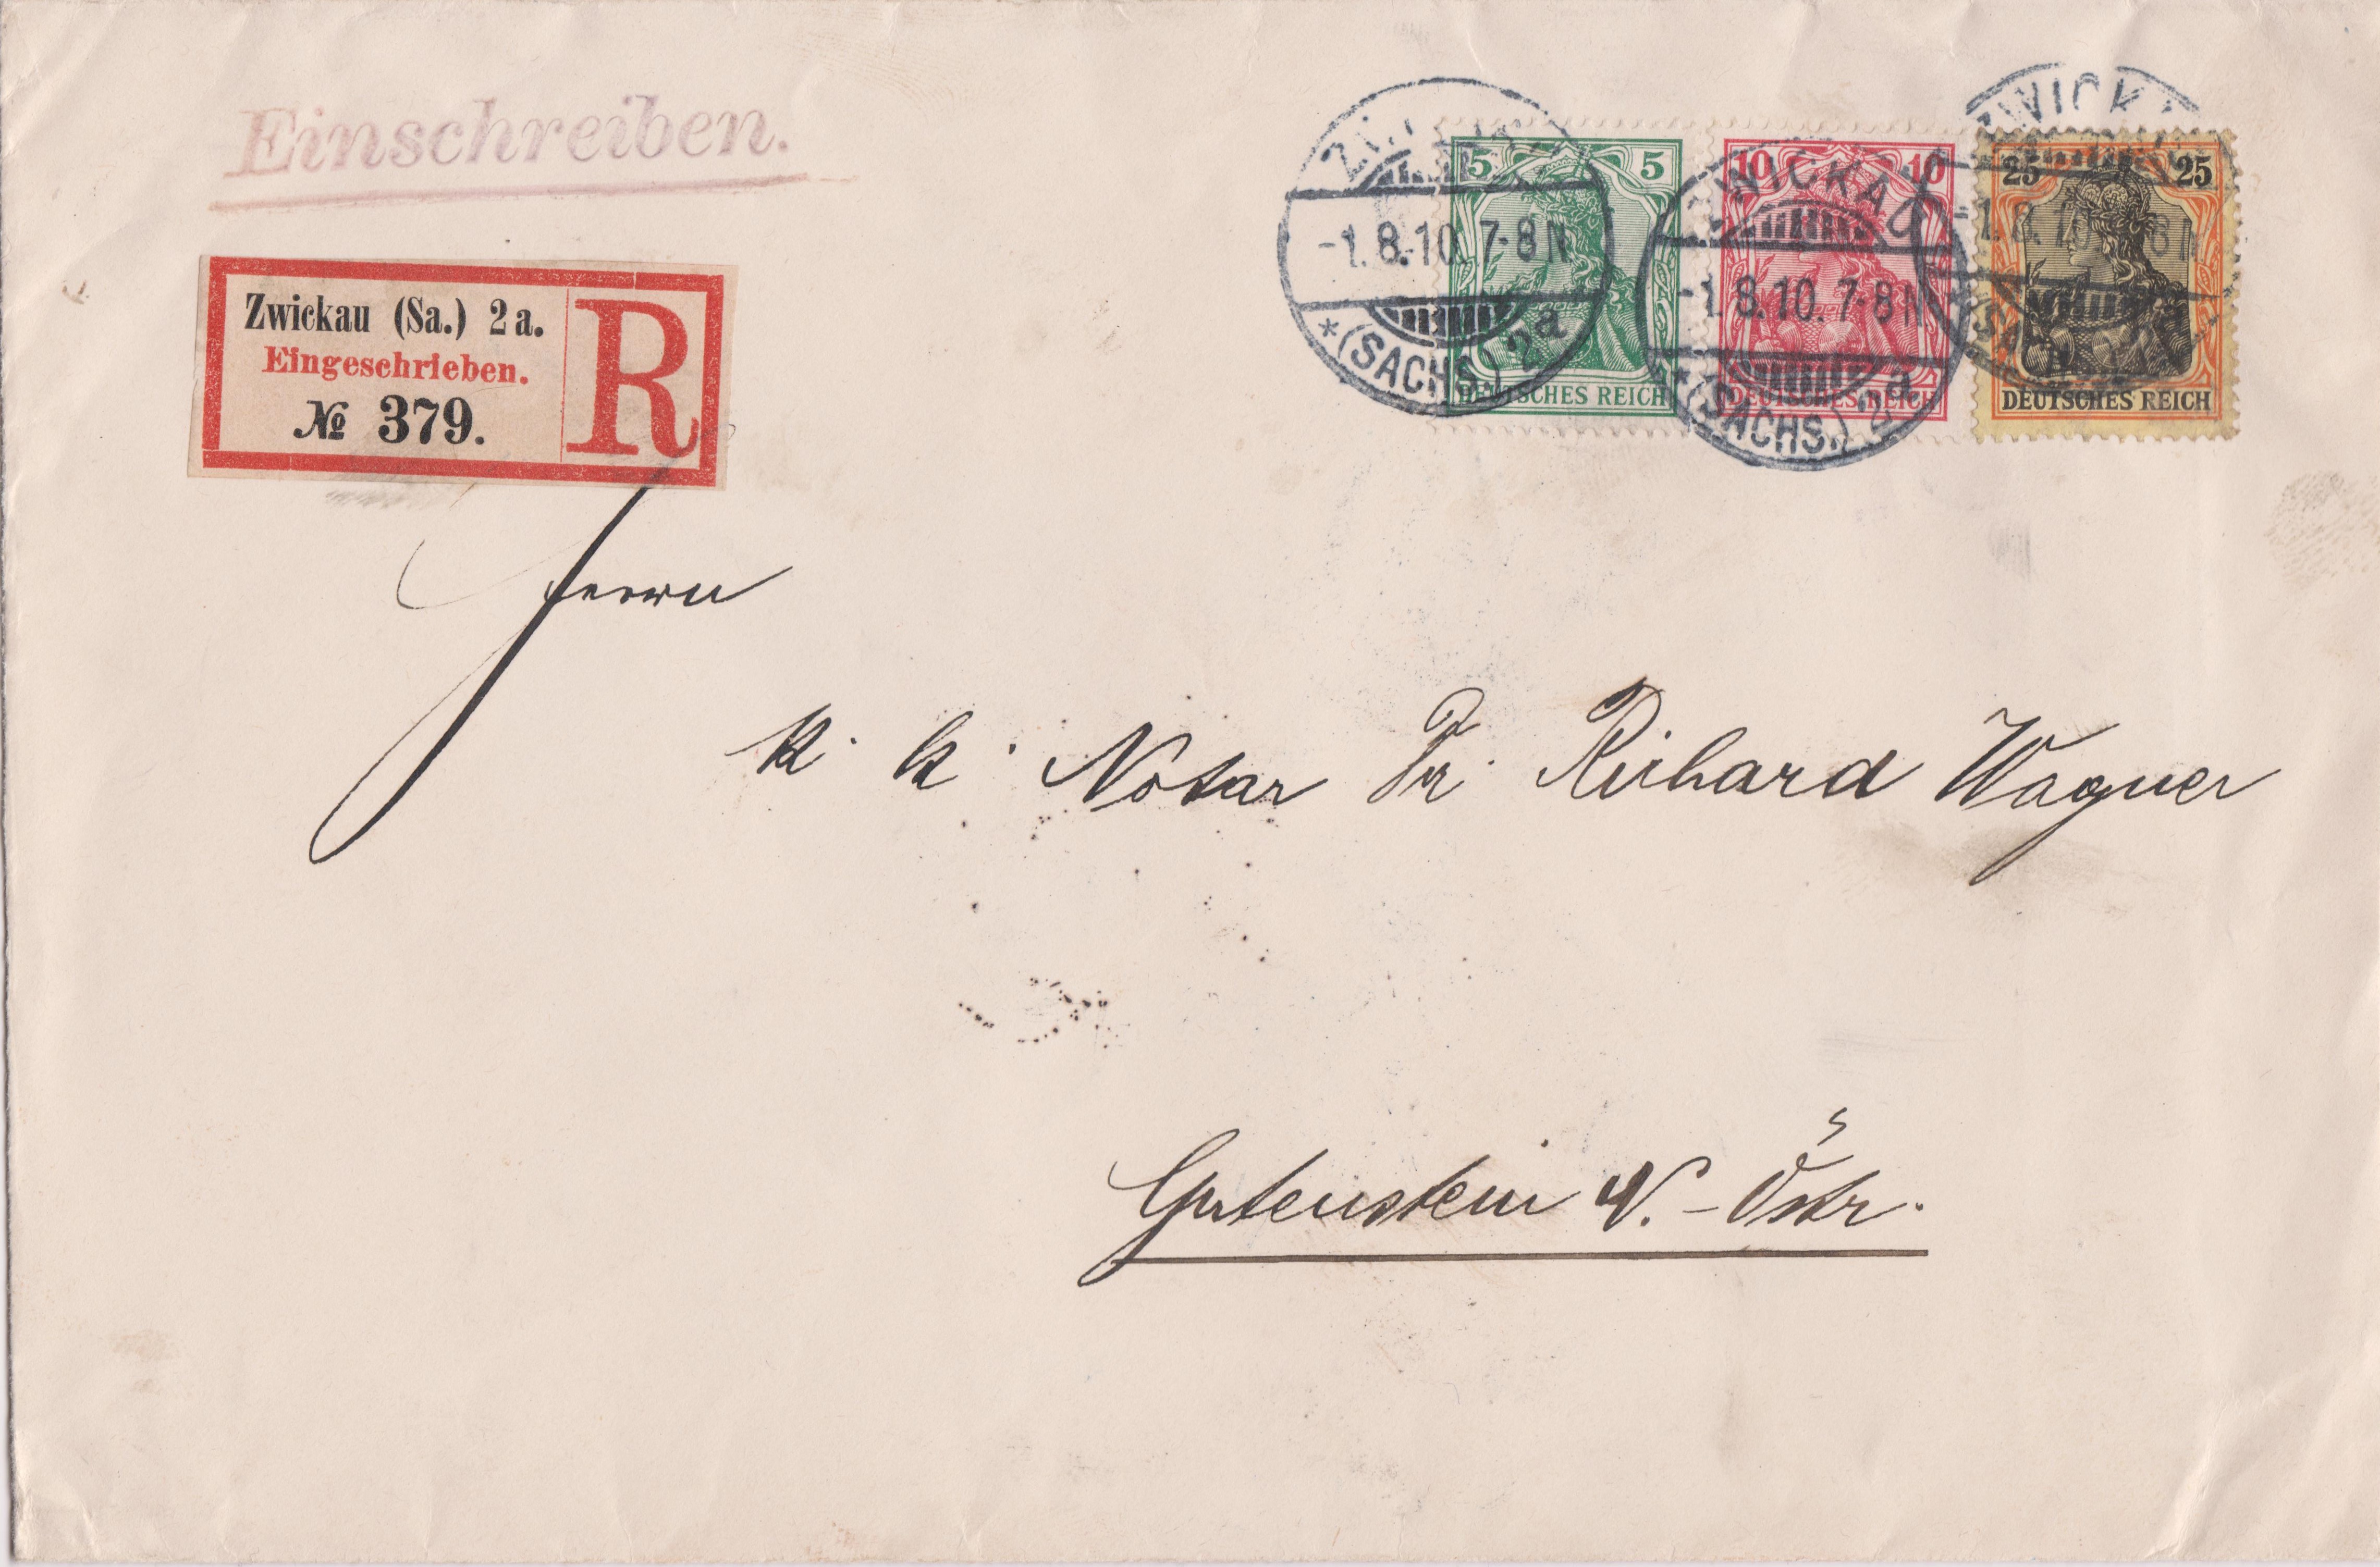 Einschreiben.
Zwickau (Sa.) 2 a.
Eingeschrieben.
№ 379.
R
ZWICKAU
-1.8.10. 7-8 N
* (SACHS.) 2a
5 5
DEUTSCHES REICH
ZWICKAU
-1.8.10. 7-8 N
* (SACHS.) 2a
10 10
DEUTSCHES REICH
ZWICKAU
-1.8.10. 7-8 N
25 25
DEUTSCHES REICH
Herrn
k. k. Notar Dr. Richard Wagner
Gutenstein N.-Östr.